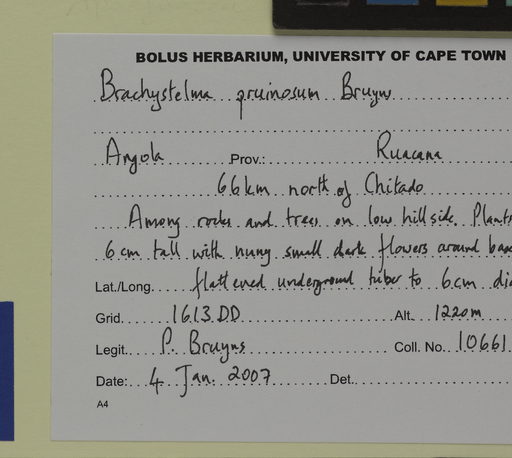 BOLUS HERBARIUM, UNIVERSITY OF CAPE TOWN
Brachystelma pruinosum Bruyns
Angola Prov.: Ruacana
66km north of Chitado
Among rocks and trees on low hillside. Plants
6cm tall with many small dark flowers around
Lat./Long. flattened underground tuber to 6cm
Grid 1613 DD Alt. 1220m
Legit. P. Bruyns Coll. No. 10661
Date: 4 Jan. 2007 Det.
A4